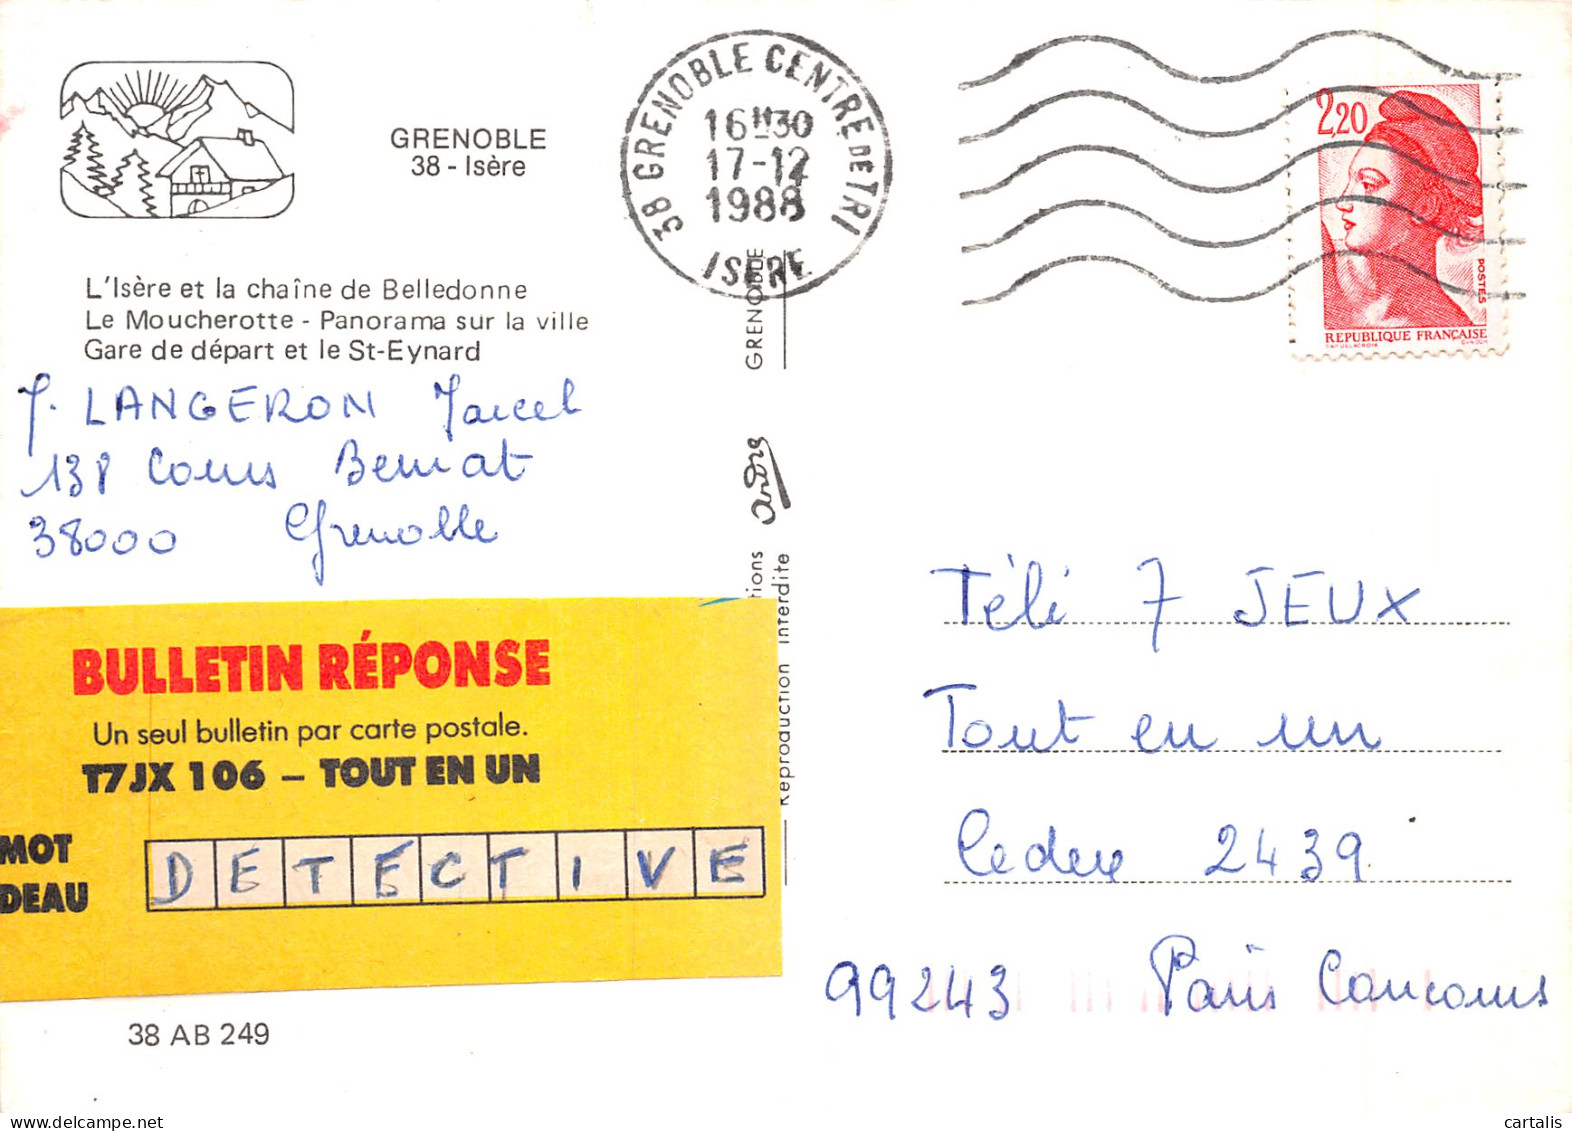 GRENOBLE
38 - Isère
38 GRENOBLE CENTRE DE TRI
16H30
17-12
1988
ISERE
2,20
POSTES
REPUBLIQUE FRANÇAISE
L'Isère et la chaîne de Belledonne
Le Moucherotte - Panorama sur la ville
Gare de départ et le St-Eynard
LANGERON Marcel
138 Cours Berriat
38000 Grenoble
GRENOBLE
André
tions
Reproduction interdite
BULLETIN RÉPONSE
Un seul bulletin par carte postale.
T7JX 106 – TOUT EN UN
MOT
DEAU
DETECTIVE
38 AB 249
Téli 7 JEUX
Tout en un
Cedex 2439
99243 Paris Concours
www.delcampe.net
cartalis